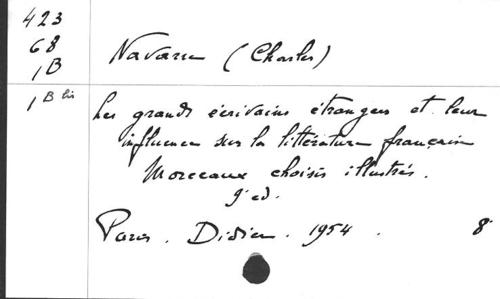 423
68
1B
Navarre (Charles)
1 B bis
Les grands écrivains étrangers et leur
influence sur la littérature française
Morceaux choisis illustrés.
9e ed.
Paris. Didier. 1954. 8°